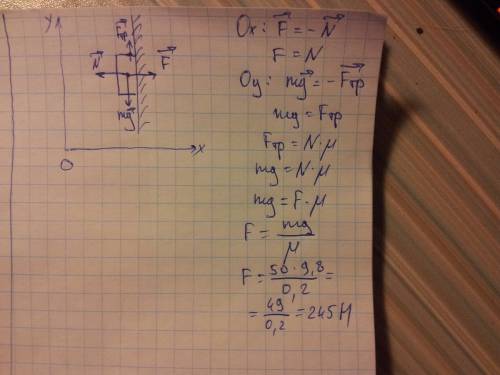 y
F⃗тр
N⃗ F⃗
mg⃗
O x
Ox: F⃗ = -N⃗
F = N
Oy: mg⃗ = -F⃗тр
mg = Fтр
Fтр = N·μ
mg = N·μ
mg = F·μ
F = mg/μ
F = 50·9,8/0,2 =
= 49/0,2 = 245 Н